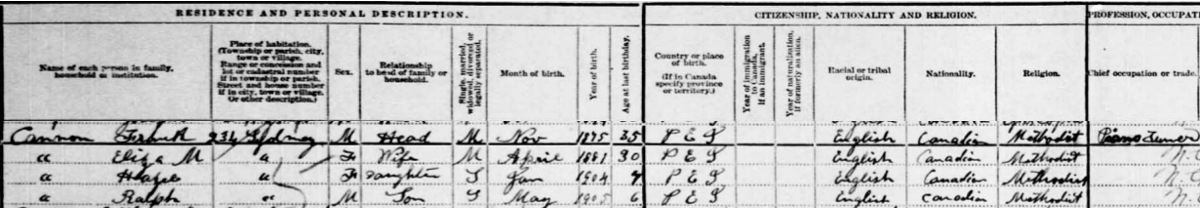 RESIDENCE AND PERSONAL DESCRIPTION.
CITIZENSHIP, NATIONALITY AND RELIGION.
PROFESSION, OCCUPAT
Name of each person in family, household or institution.
Place of habitation. (Township or parish, city, town or village. Range or concession and lot or cadastral number if in township or parish. Street and house number if in city, town or village. Or other description.)
Sex.
Relationship to head of family or household.
Single, married, widowed, divorced or legally separated.
Month of birth.
Year of birth.
Age at last birthday.
Country or place of birth. (If in Canada specify province or territory.)
Year of immigration to Canada, if an immigrant.
Year of naturalization, if formerly an alien.
Racial or tribal origin.
Nationality.
Religion.
Chief occupation or trade.
Cannon Frank 234 Sydney M Head M Nov 1875 35 P E I English Canadian Methodist Piano Tuner
" Eliza M " F Wife M April 1881 30 P E I English Canadian Methodist
" Hazel " F Daughter S Jan 1904 7 P E I English Canadian Methodist
" Ralph " M Son S May 1905 6 P E I English Canadian Methodist